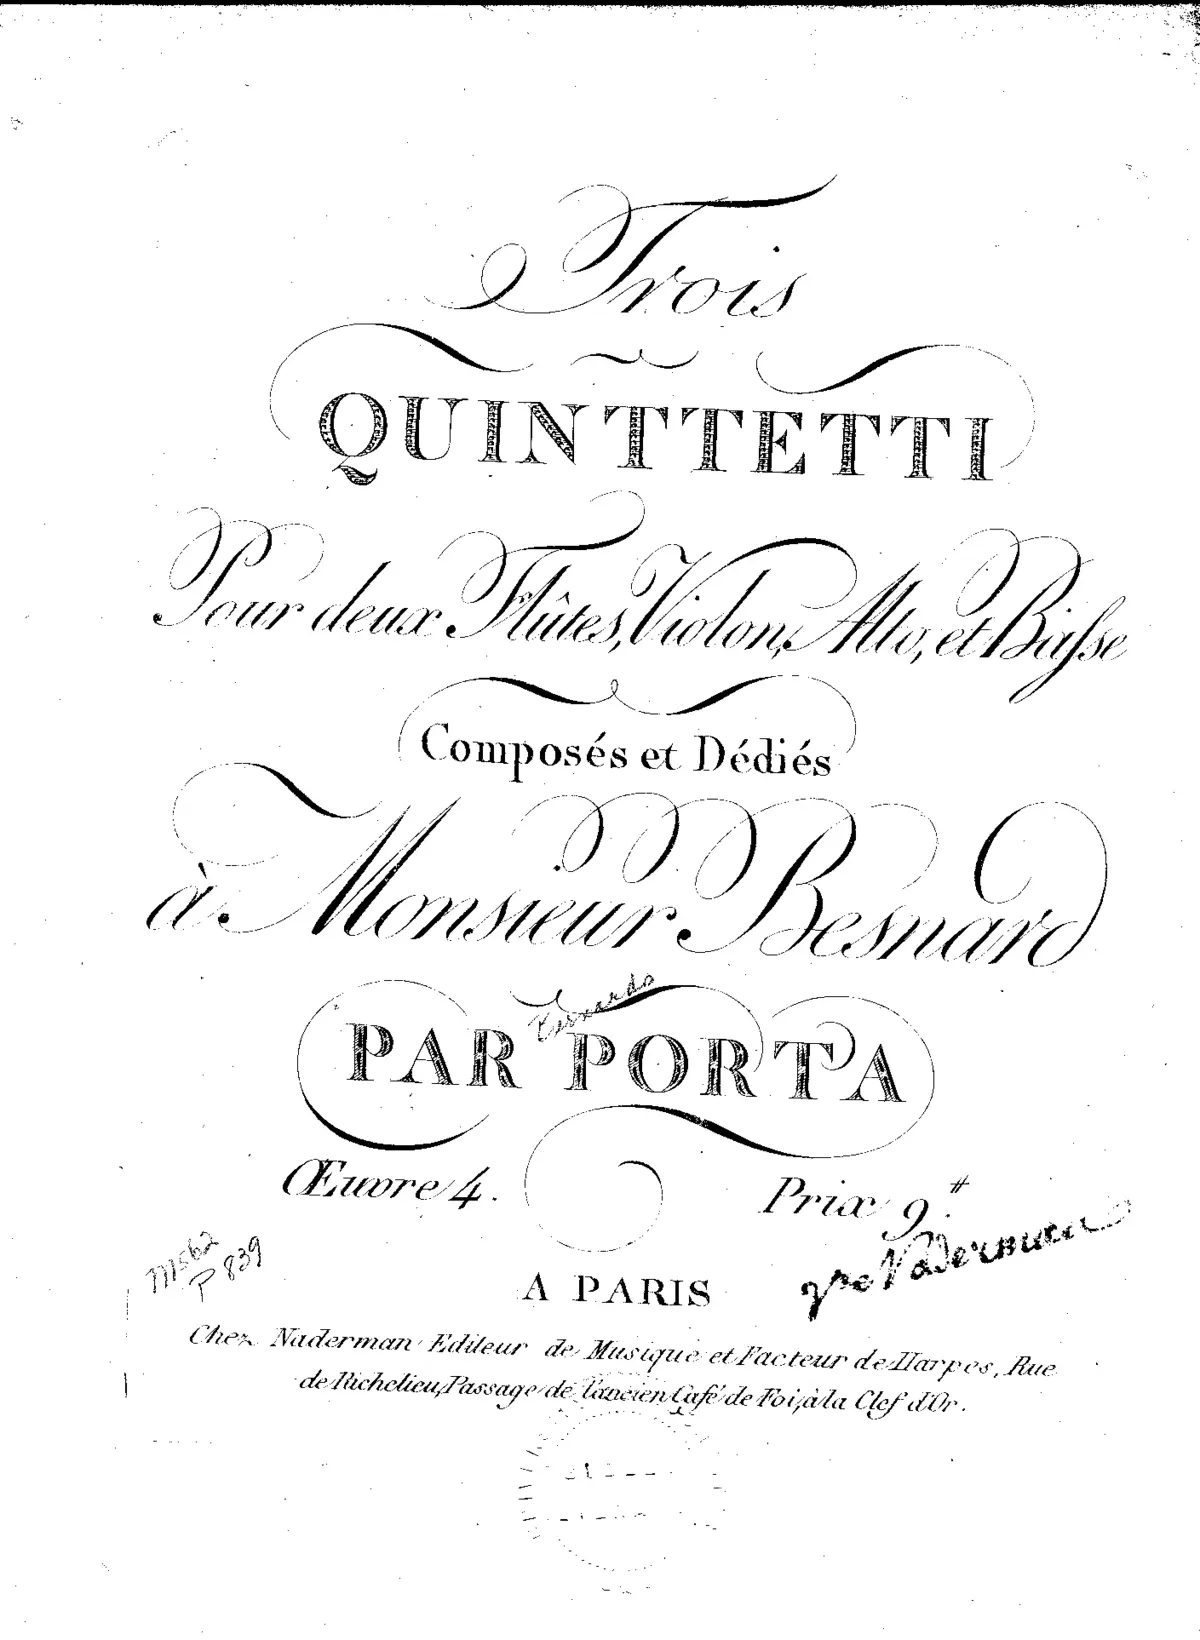 Trois
QUINTTETTI
Pour deux Flûtes, Violon, Alto, et Baſse
Composés et Dédiés
à Monsieur Besnard
Bernardo
PAR PORTA
Œuvre 4. Prix 9.#
M562
P839
Naderman
A PARIS
Chez Naderman Editeur de Musique et Facteur de Harpes, Rue
de Richelieu, Passage de l'ancien Café de Foi, à la Clef d'Or.